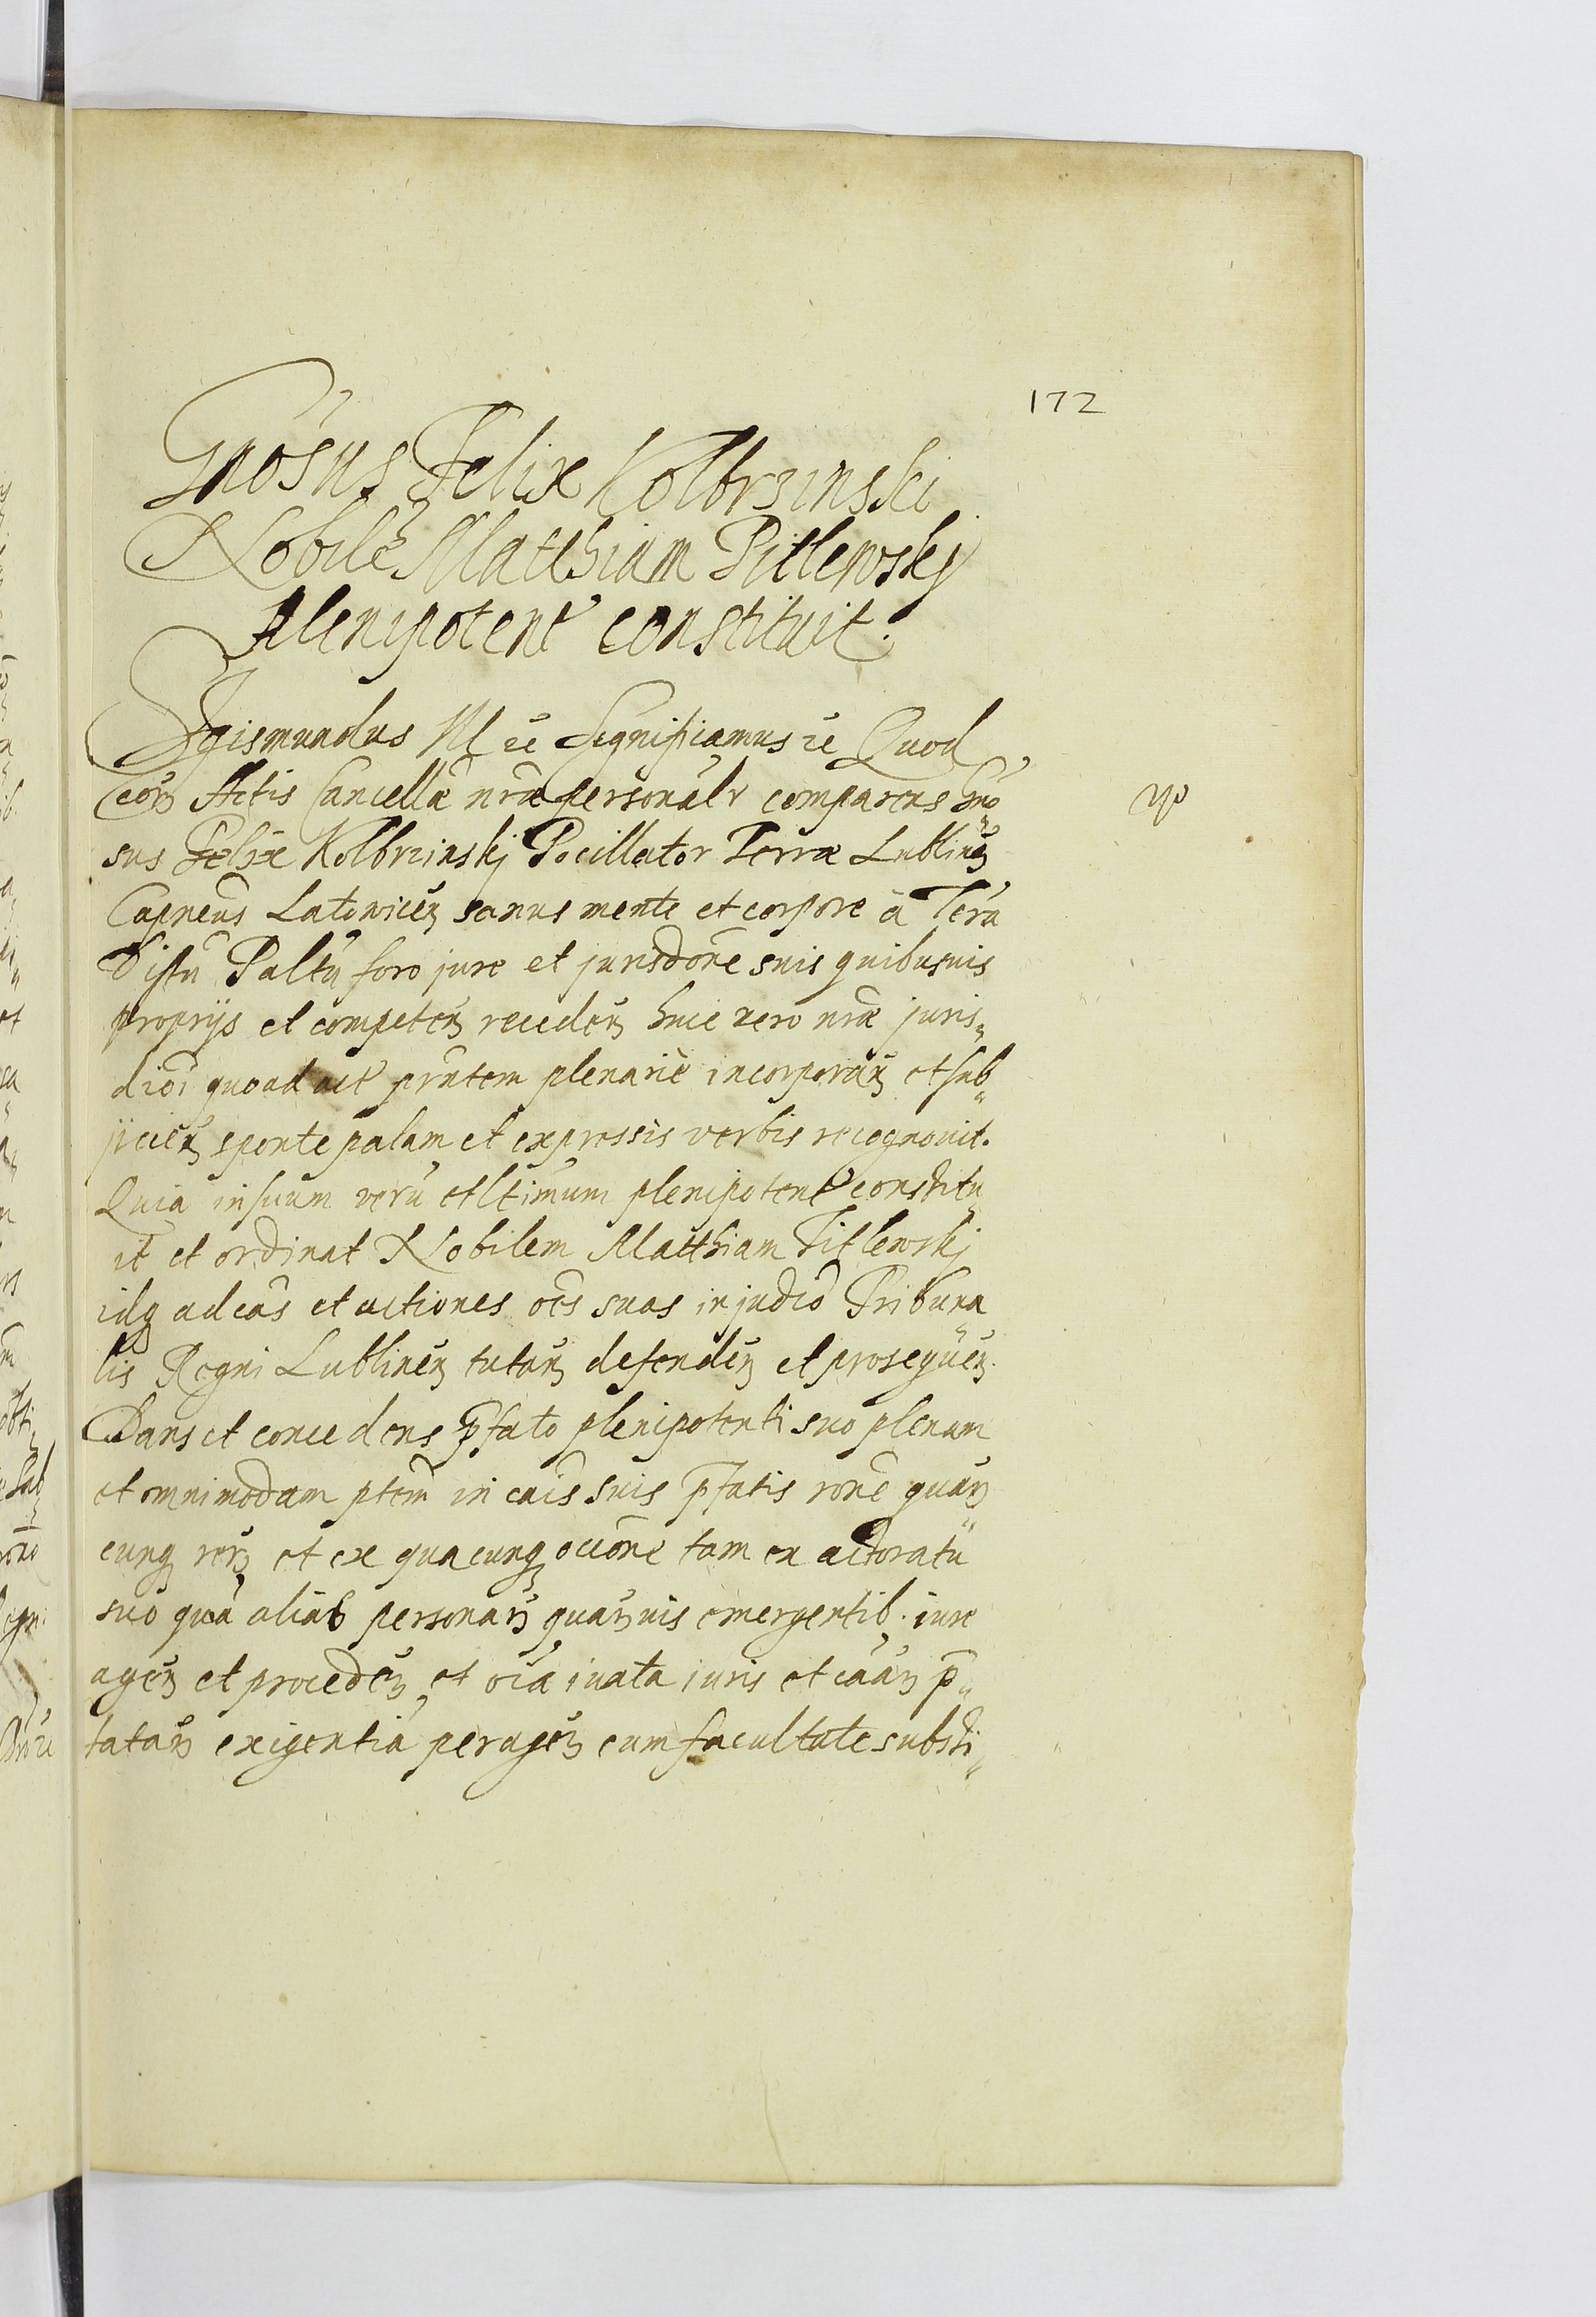 172
Gnosus Felix Kolbrzinski
Nobilē Matthiam Pitlewsky
Plenipotent constituit.
Sigismundus III etc Significamus etc Quod
corā Actis Cancellae nrae personalr comparens Gno
sus Felix Kolbrzinskj Pocillator Terrae Lublineñ
Capneus Latowiceñ sanus mente et corpore à Terra
Distu Paltu foro jure et jurisdone suis quibusuis
proprijs et competeñ recedeñ huic vero nrae juris„
dioi quoad act prntem plenariè incorporañ et sub„
ijcieñ sponte palam et expressis verbis recognouit.
Quia in suum verū et ltimum plenipotent constitu
it et ordinat Nobilem Matthiam Pitlewskj
idq ad cas et actiones oes suas in judicio Tribuna
lis Regni Lublineñ tutañ defendeñ et prosequeñ.
Dans et concedens p̄fato plenipotenti suo plenam
et omnimodam ptem in cais suis p̄fatis rone quar„
cunq rerū et ex quacunq occione tam ex actoratu
suo quā aliab personarū quarūuis emergentib. iure
ageñ et procedeñ et oia iuxta iuris et caarū p̄„
tatarū exigentiā perageñ cum facultate substi„